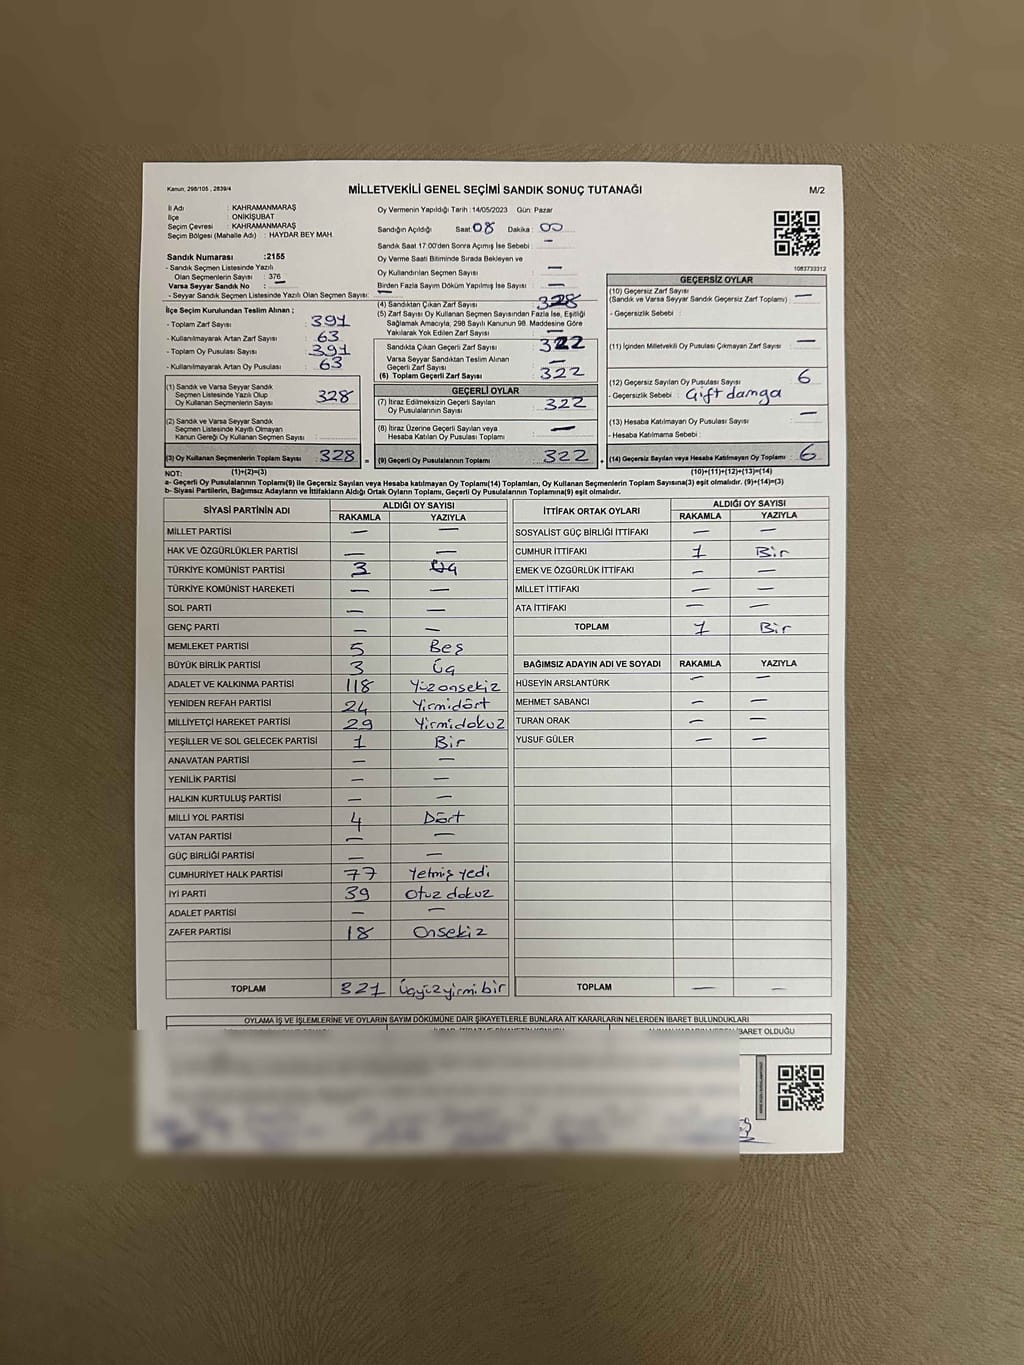 Kanun, 298/105 , 2839/4
MİLLETVEKİLİ GENEL SEÇİMİ SANDIK SONUÇ TUTANAĞI
M/2
İl Adı : KAHRAMANMARAŞ
İlçe : ONİKİŞUBAT
Seçim Çevresi : KAHRAMANMARAŞ
Seçim Bölgesi (Mahalle Adı) : HAYDAR BEY MAH.
Sandık Numarası :2155
- Sandık Seçmen Listesinde Yazılı
Olan Seçmenlerin Sayısı : 376
Varsa Seyyar Sandık No : —
- Seyyar Sandık Seçmen Listesinde Yazılı Olan Seçmen Sayısı: —
İlçe Seçim Kurulundan Teslim Alınan ;
- Toplam Zarf Sayısı 391
- Kullanılmayarak Artan Zarf Sayısı : 63
- Toplam Oy Pusulası Sayısı : 391
- Kullanılmayarak Artan Oy Pusulası : 63
(1) Sandık ve Varsa Seyyar Sandık
Seçmen Listesinde Yazılı Olup
Oy Kullanan Seçmenlerin Sayısı : 328
(2) Sandık ve Varsa Seyyar Sandık
Seçmen Listesinde Kayıtlı Olmayan
Kanun Gereği Oy Kullanan Seçmen Sayısı :
(3) Oy Kullanan Seçmenlerin Toplam Sayısı : 328
Oy Vermenin Yapıldığı Tarih : 14/05/2023 Gün: Pazar
Sandığın Açıldığı Saat: 08 Dakika : 00
Sandık Saat 17.00'den Sonra Açımış İse Sebebi : —
Oy Verme Saati Bitiminde Sırada Bekleyen ve
Oy Kullandırılan Seçmen Sayısı : —
Birden Fazla Sayım Döküm Yapılmış İse Sayısı : —
(4) Sandıktan Çıkan Zarf Sayısı 328
(5) Zarf Sayısı Oy Kullanan Seçmen Sayısından Fazla İse, Eşitliği
Sağlamak Amacıyla, 298 Sayılı Kanunun 98. Maddesine Göre
Yakılarak Yok Edilen Zarf Sayısı : —
Sandıkta Çıkan Geçerli Zarf Sayısı : 322
Varsa Seyyar Sandıktan Teslim Alınan
Geçerli Zarf Sayısı : —
(6) Toplam Geçerli Zarf Sayısı : 322
GEÇERLİ OYLAR
(7) İtiraz Edilmeksizin Geçerli Sayılan
Oy Pusulalarının Sayısı : 322
(8) İtiraz Üzerine Geçerli Sayılan veya
Hesaba Katılan Oy Pusulası Toplamı : —
(9) Geçerli Oy Pusulalarının Toplamı : 322
1083733312
GEÇERSİZ OYLAR
(10) Geçersiz Zarf Sayısı
(Sandık ve Varsa Seyyar Sandık Geçersiz Zarf Toplamı) : —
- Geçersizlik Sebebi :
(11) İçinden Milletvekili Oy Pusulası Çıkmayan Zarf Sayısı : —
(12) Geçersiz Sayılan Oy Pusulası Sayısı : 6
- Geçersizlik Sebebi : Çift damga
(13) Hesaba Katılmayan Oy Pusulası Sayısı : —
- Hesaba Katılmama Sebebi :
(14) Geçersiz Sayılan veya Hesaba Katılmayan Oy Toplamı : 6
NOT: (1)+(2)=(3) (10)+(11)+(12)+(13)=(14)
a- Geçerli Oy Pusulalarının Toplamı(9) ile Geçersiz Sayılan veya Hesaba katılmayan Oy Toplamı(14) Toplamları, Oy Kullanan Seçmenlerin Toplam Sayısına(3) eşit olmalıdır. (9)+(14)=(3)
b- Siyasi Partilerin, Bağımsız Adayların ve İttifakların Aldığı Ortak Oyların Toplamı, Geçerli Oy Pusulalarının Toplamına(9) eşit olmalıdır.
SİYASİ PARTİNİN ADI ALDIĞI OY SAYISI
RAKAMLA YAZIYLA
MİLLET PARTİSİ — —
HAK VE ÖZGÜRLÜKLER PARTİSİ — —
TÜRKİYE KOMÜNİST PARTİSİ 3 Üç
TÜRKİYE KOMÜNİST HAREKETİ — —
SOL PARTİ — —
GENÇ PARTİ — —
MEMLEKET PARTİSİ 5 Beş
BÜYÜK BİRLİK PARTİSİ 3 Üç
ADALET VE KALKINMA PARTİSİ 118 Yüzonsekiz
YENİDEN REFAH PARTİSİ 24 Yirmidört
MİLLİYETÇİ HAREKET PARTİSİ 29 Yirmidokuz
YEŞİLLER VE SOL GELECEK PARTİSİ 1 Bir
ANAVATAN PARTİSİ — —
YENİLİK PARTİSİ — —
HALKIN KURTULUŞ PARTİSİ — —
MİLLİ YOL PARTİSİ 4 Dört
VATAN PARTİSİ — —
GÜÇ BİRLİĞİ PARTİSİ — —
CUMHURİYET HALK PARTİSİ 77 Yetmiş yedi
İYİ PARTİ 39 Otuz dokuz
ADALET PARTİSİ — —
ZAFER PARTİSİ 18 Onsekiz
TOPLAM 321 Üçyüzyirmi bir
İTTİFAK ORTAK OYLARI ALDIĞI OY SAYISI
RAKAMLA YAZIYLA
SOSYALİST GÜÇ BİRLİĞİ İTTİFAKI — —
CUMHUR İTTİFAKI 1 Bir
EMEK VE ÖZGÜRLÜK İTTİFAKI — —
MİLLET İTTİFAKI — —
ATA İTTİFAKI — —
TOPLAM 1 Bir
BAĞIMSIZ ADAYIN ADI VE SOYADI RAKAMLA YAZIYLA
HÜSEYİN ARSLANTÜRK — —
MEHMET SABANCI — —
TURAN ORAK — —
YUSUF GÜLER — —
TOPLAM — —
OYLAMA İŞ VE İŞLEMLERİNE VE OYLARIN SAYIM DÖKÜMÜNE DAİR ŞİKAYETLERLE BUNLARA AİT KARARLARIN NELERDEN İBARET BULUNDUKLARI
İBARET OLDUĞU